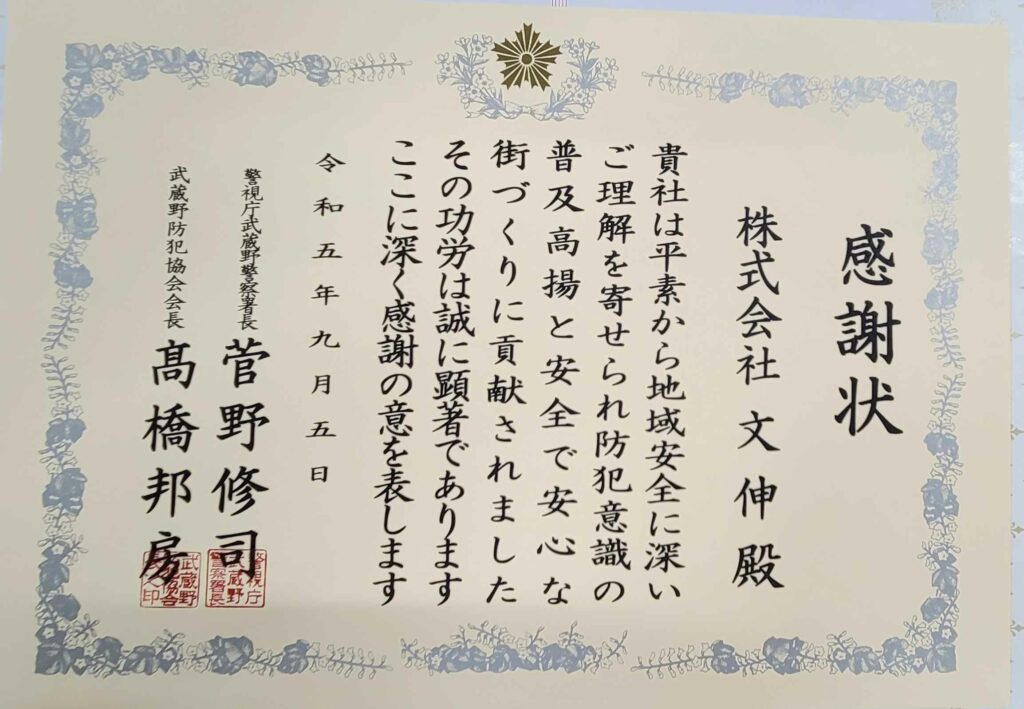 感謝状
株式会社 文伸殿
貴社は平素から地域安全に深い
ご理解を寄せられ防犯意識の
普及高揚と安全で安心な
街づくりに貢献されました
その功労は誠に顕著であります
ここに深く感謝の意を表します
令和五年九月五日
警視庁武蔵野警察署長 菅野修司
警視庁
武蔵野
警察署長
武蔵野防犯協会会長 髙橋邦房
武蔵野